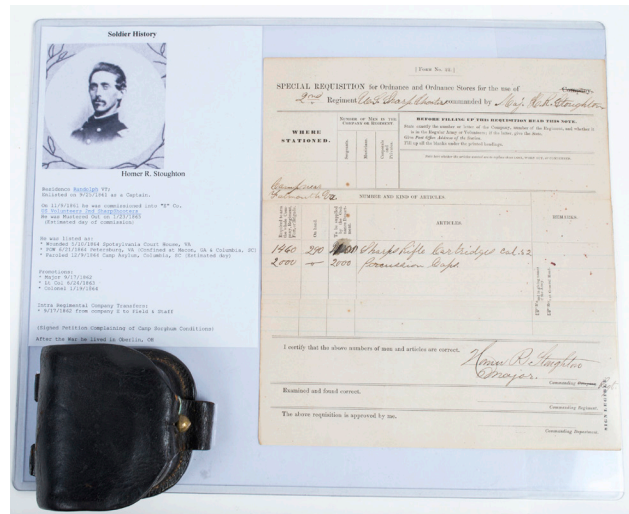 Soldier History
Homer R. Stoughton
Residence Randolph VT;
Enlisted on 9/25/1861 as a Captain.
On 11/9/1861 he was commissioned into "E" Co.
US Volunteers 2nd Sharpshooters
He was Mustered Out on 1/23/1865
(Estimated day of commission)
He was listed as:
* Wounded 5/10/1864 Spotsylvania Court House, VA
* POW 6/21/1864 Petersburg, VA (Confined at Macon, GA & Columbia, SC)
* Paroled 12/9/1864 Camp Asylum, Columbia, SC (Estimated day)
Promotions:
* Major 9/17/1862
* Lt Col 6/24/1863
* Colonel 1/19/1864
Intra Regimental Company Transfers:
* 9/17/1862 from company E to Field & Staff
(Signed Petition Complaining of Camp Sorghum Conditions)
After the War he lived in Oberlin, OH
[FORM No. 12.]
SPECIAL REQUISITION for Ordnance and Ordnance Stores for the use of Company,
2nd Regiment U.S. Sharp Shooters commanded by Maj. H.R. Stoughton
WHERE STATIONED.
NUMBER OF MEN IN THE COMPANY OR REGIMENT.
Sergeants.
BEFORE FILLING UP THE REQUISITION READ THIS NOTE.
Give Post Office Address of the Station.
Fill up all the blanks under the printed headings.
Camp near
Falmouth Va
NUMBER AND KIND OF ARTICLES
On hand.
ARTICLES
REMARKS.
1940 240 Sharps Rifle Cartridges Cal. 52
2000 — 2000 Percussion Caps
I certify that the above numbers of men and articles are correct.
Homer R. Stoughton
Major.
Commanding
Examined and found correct.
Commanding Regiment.
The above requisition is approved by me.
Commanding Department.
SIGN LEGIBLY.